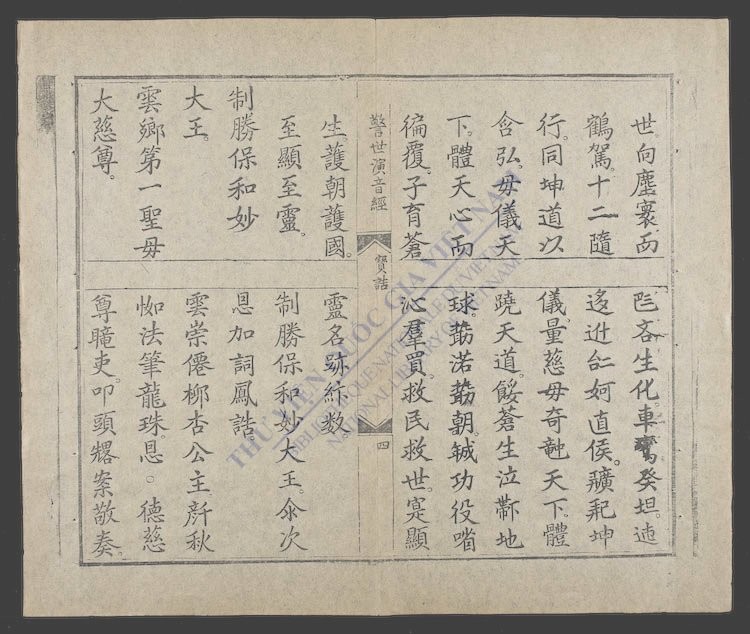 世向塵寰而
鶴駕。十二隨
行。同坤道以
含弘。毋儀天
下。體天心而
徧覆。子育蒼
吝生化。車鸞癸坦。迻
迻迡 妸直侯。坤
儀量慈毋奇 天下。體
天道。餒蒼生泣 地
球。 渃 朝。鉞功役
沁羣買。救民救世。寔顯
警世演音經
寶誥
四
生護朝護國。
至顯至靈。
制勝保和妙
大王。
雲鄉第一聖毋
大慈尊。
靈名跡 数
制勝保和妙大王。 次
恩加詞鳳誥。
雲崇僊柳杏公主 秋
法筆龍珠。恩。德慈
尊 吏。叩頭 案敬奏。
THƯ VIỆN QUỐC GIA VIỆT NAM
BIBLIOTHEQUE NATIONALE DU VIETNAM
NATIONAL LIBRARY OF VIETNAM